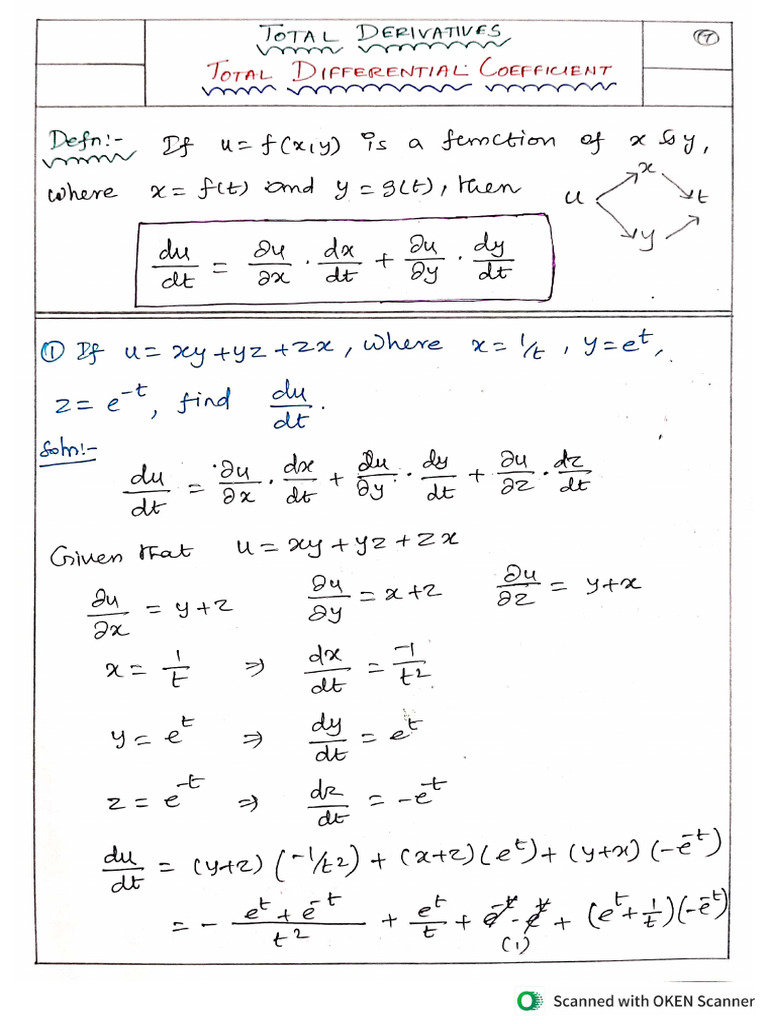 TOTAL DERIVATIVES
(17)
TOTAL DIFFERENTIAL COEFFICIENT
Defn:- If u = f(x,y) is a function of x & y,
where x = f(t) and y = g(t), then
u x y t
du/dt = ∂u/∂x · dx/dt + ∂u/∂y · dy/dt
① If u = xy + yz + zx, where x = 1/t, y = e^t,
z = e^-t, find du/dt.
Soln:-
du/dt = ∂u/∂x · dx/dt + ∂u/∂y · dy/dt + ∂u/∂z · dz/dt
Given that u = xy + yz + zx
∂u/∂x = y+z ∂u/∂y = x+z ∂u/∂z = y+x
x = 1/t ⇒ dx/dt = -1/t²
y = e^t ⇒ dy/dt = e^t
z = e^-t ⇒ dz/dt = -e^-t
du/dt = (y+z)(-1/t²) + (x+z)(e^t) + (y+x)(-e^-t)
= - (e^t + e^-t)/t² + e^t/t + e^-t · e^t + (e^t + 1/t)(-e^-t)
(1)
Scanned with OKEN Scanner